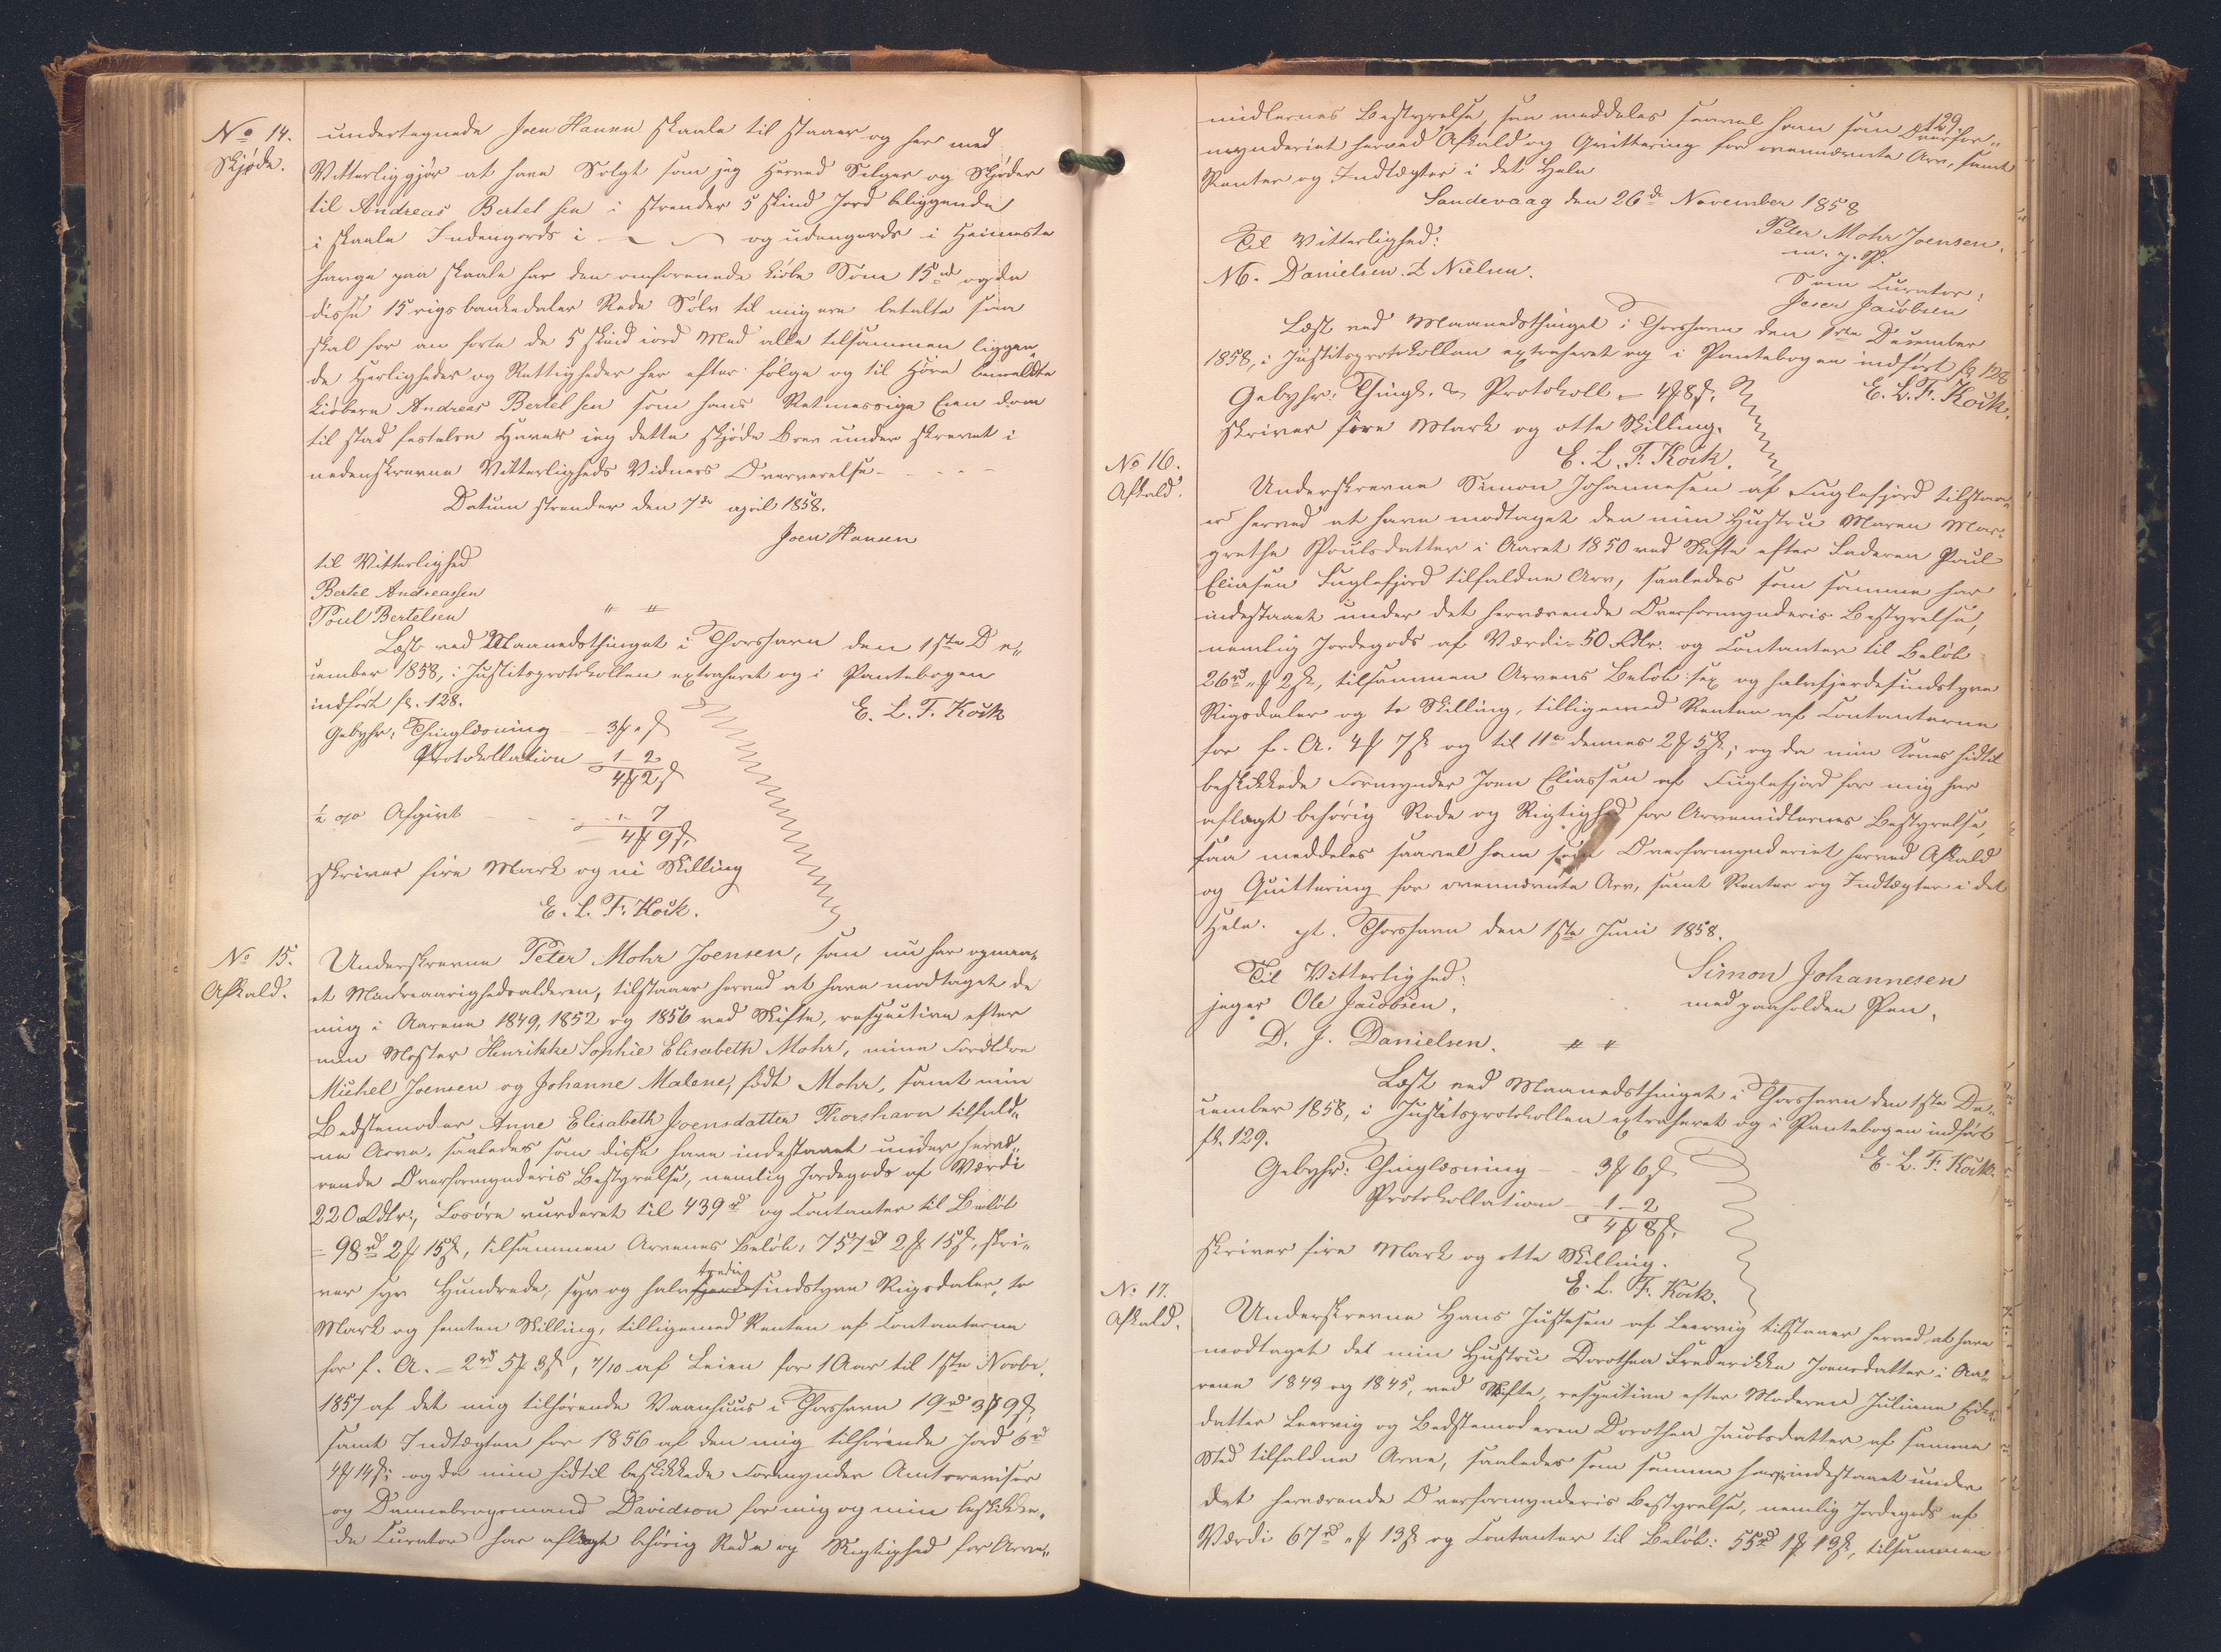 No 14.
Skjøde.
undertegnede Joen Hansen Skaale til staaer og her med
Vitterliggjør at have Solgt som jeg herved Selger og Skjøder
til Andreas Bertelsen i Strender 5 Skind Jord beliggende
i Skaale Indengerds i og udengerds i Heimeste
hauge paa Skaale for den omforenede kiøbe Som 15 rd og da
disse 15 rigsbankedaler Rede Sølv til mig ere betalte saa
skal for an førte de 5 skind iord Med alle tilsammen liggen„
de Herligheder og Rettigheder her efter følge og til Høre bemeldte
kiøbere Andreas Bertelsen som hans Retmessige Eien dom
til stad festelse Haver ieg dette skjøde brev under skrevet i
nedenskrevne Vitterligheds Vidners Oververelse
Datum Strender den 7de april 1858.
Joen Hansen
til Vitterlighed
Bertel Andreassen
Poul Bertelsen
Læst ved Maanedsthinget i Thorshavn den 1ste De„
cember 1858, i Justitsprotokollen extraheret og i Pantebogen
indført fol. 128.
E. L. F. Kock
Gebyhr: Thinglæsning 3 " 
Protokollation 1 - 2
4 2
½ % Afgivt " 7
4 9
skriver fire Mark og ni Skilling
E. L. F. Kock.
No 15.
Afkald.
Underskrevne Peter Mohr Joensen, som nu har opnaa„
et Mindreaarighedsalderen, tilstaaer herved at have modtaget de
mig i Aarene 1849, 1852 og 1856 ved Skifte, respective efter
min Moster Henrikke Sophie Elisabeth Mohr, mine Forældre
Michel Joensen og Johanne Malene, født Mohr, samt min
Bedstemoder Anne Elisabeth Joensdatter Thorshavn tilfald„
ne Arve, saaledes som disse have indestaaet under hervæ„
rende Overformynderis Bestyrelse, nemlig Jordegods af Værdi
220 Rdlr., Losøre vurderet til 439 rd og Contanter til Beløb
= 98 rd 2 15, tilsammen Arvenes Beløb: 757 rd 2 15, skri„
ver syv Hundrede, syv og halvtredsindstyve Rigsdaler, to
Mark og femten Skilling, tilligemed Renten af Contanterne
for f. A. = 2 rd 5 3, 7/10 af Leien for 1 Aar til 1ste Novbr.
1857 af det mig tilhørende Vaanhuus i Thorshavn 19 rd 3 9,
samt Indtægten for 1856 af den mig tilhørende Jord 6 rd
4 14; og da min hidtil beskikkede Formynder Amtsrevisor
og Dannebrogsmand Davidson for mig og min beskikke„
de Curator har aflagt behørig Rede og Rigtighed for Arve„
129.
midlernes Bestyrelse, saa meddeles saavel ham som Overfor„
mynderiet herved Afkald og Qvittering for ovennævnte Arv, samt
Renter og Indtægter i det Hele
Sandevaag den 26de November 1858
Peter Mohr Joensen.
m. p. P.
Til Vitterlighed:
M. Danielsen. Z Nielsen.
Som Curator:
Jeser Jacobsen
Læst ved Maanedsthinget i Thorshavn den 1ste December
1858, i Justitsprotokollen extraheret og i Pantebogen indført fol 128
E. L. F. Kock.
Gebyhr: Thingl. & Protokoll = 4 8.
skriver fire Mark og otte Skilling.
E. L. F. Kock.
No 16.
Afkald.
Underskrevne Simon Johannesen af Fuglefjord tilstaa„
er herved at have modtaget den min Hustru Maren Mar„
grethe Poulsdatter i Aaret 1850 ved Skifte efter Faderen Poul
Eliasen Fuglefjord tilfaldne Arv, saaledes som samme har
indestaaet under det herværende Overformynderis Bestyrelse,
nemlig Jordegods af Værdi = 50 Rdlr. og Contanter til Beløb
26 rd " 2, tilsammen Arvens Beløb: sex og halvfjerdesindstyve
Rigsdaler og to Skilling, tilligemed Renten af Contanterne
for f. A. 4 7 og til 11te dennes 2 5; og da min Kones hidtil
beskikkede Formynder Joen Eliassen af Fuglefjord for mig har
aflagt behørig Rede og Rigtighed for Arvemidlernes Bestyrelse,
saa meddeles saavel ham som Overformynderiet herved Afkald
og Qvittering for ovennævnte Arv, samt Renter og Indtægter i det
Hele. pt. Thorshavn den 1ste Juni 1858.
Simon Johannesen
med paaholden Pen.
Til Vitterlighed:
jeger Ole Jacobsen.
D. J. Danielsen.
Læst ved Maanedsthinget i Thorshavn den 1ste De„
cember 1858, i Justitsprotokollen extraheret og i Pantebogen indført
fol. 129.
E. L. F. Kock.
Gebyhr: Thinglæsning 3 6
Protokollation 1 - 2
4 8.
skriver fire Mark og otte Skilling.
E. L. F. Kock.
No 17.
Afkald.
Underskrevne Hans Justesen af Leervig tilstaaer herved at have
modtaget det min Hustru Dorothea Frederikke Joensdatter i Aa„
rene 1843 og 1845, ved Skifte, respective efter Moderen Juliane
datter Leervig og Bedstemoderen Dorothea Jacobsdatter af samme
Sted tilfaldne Arve, saaledes som samme have indestaaet under
det herværende Overformynderis Bestyrelse, nemlig Jordegods af
Værdi 67 rd " 13 og Contanter til Beløb: 55 rd 1 13, tilsammen